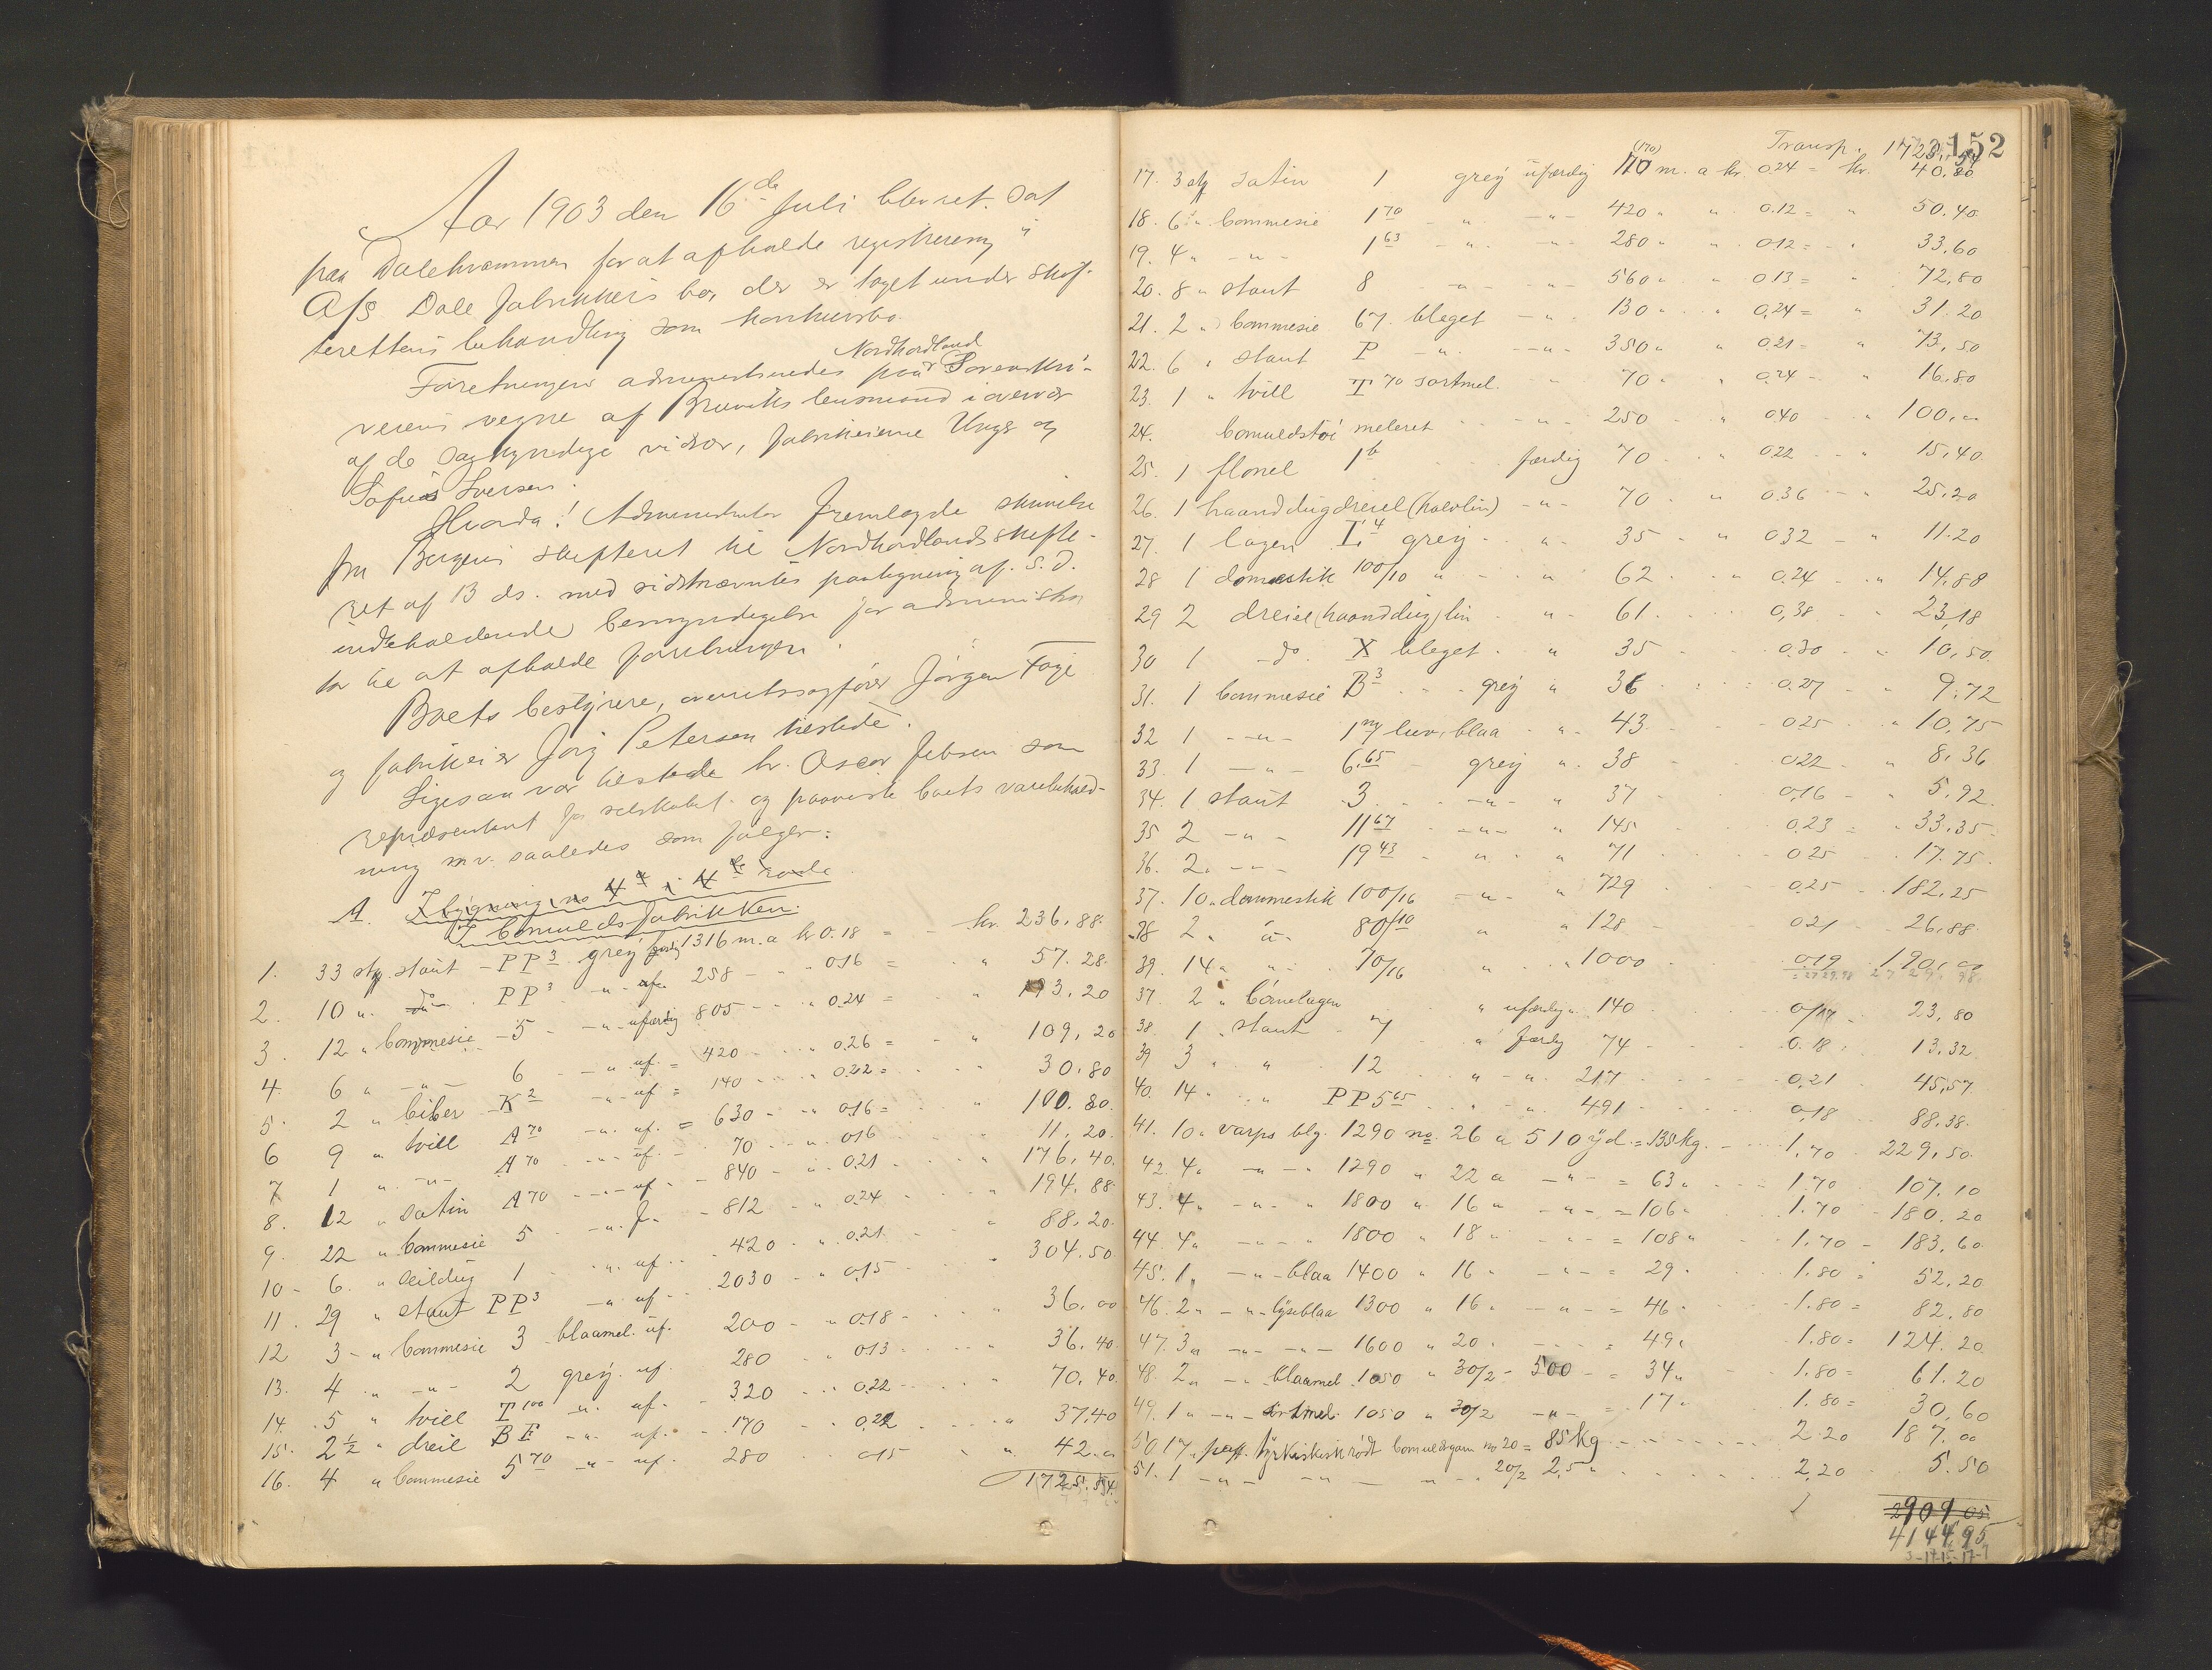 Aar 1903 den 16de Juli blev ret sat
paa Dalekvammen for at afholde registrering i
A/S Dale fabrikkers bo, der er taget under skif-
terettens behandling som konkursbo.
Forretningen administreredes paa Nordhordland Sorenskri-
verens vegne af Bruviks lensmand i overvær
af de sagkyndige vidner, fabrikeierne Unger og
Sofus Iversen.
Hvorda! Administrator fremlagde skrivelse
fra Bergens skifteret til Nordhordlands skifte-
ret af 13 ds. med sidstnævntes paategning af s.d.
indeholdende bemyndigelse for administra
tor til at afholde forretningen.
Boets bestyrere, overretssagfører Jørgen Faye
og fabrikeier Joys Petersen tilstede.
Ligesaa var tilstede hr. Oscar Jebsen som
repræsentant for selskabet og paaviste boets varebehold-
ning m.v. saaledes som følger:
A. I bygning no 4 a i 4de rode
I Bomuldsfabrikken.
1. 33 stk stout - PP3 grey færdig 1316 m. a kr 0.18 = kr. 236.88.
2. 10 " do PP3 - " - 258 - " 0.16 = " 57.28.
3. 12 " bommesie - 5 - " - ufærdig 805 - " 0.24 = " 193.20
4. 6 " - " - 6 - " uf. = 420 - " 0.26 = " 109.20
5. 2 " biber K2 - " - uf = 140 - " 0.22 = 30.80
6 9 " tvill A70 - " uf. = 630 - " 0.16 = " 100.80.
7 1 " - " - A70 - " - uf. - 70 - " 016 11.20.
8. 12 " satin A70 - " - uf - 840 - " 0.21 " 176.40.
9. 22 " bommesie 5 - " f. - 812 - " 0.24 " 194.88
10 - 6 " seildug 1 - " uf - 420 - " 0.21 " 88.20.
11. 29 " stout PP3 - " uf - 2030 - " 0.15 " 304.50
12 3 - " bommesie 3 blaamel. uf. 200 - " 0.18 - " 36.00
13. 4 " - " - 2 grey. uf 280 " 013 - " 36.40.
14. 5 " tvill T100 - " uf. - 320 - " 0.22 - " 70.40.
15. 2 1/2 " dreil BF - " uf. - 170 - " 0.22 - " 37.40
16. 4 " bommesie 5 70 - " - uf. 280 015 " 42.00
1725.54.
152
Transp. 1725.54
17. 3 stk satin 1 grey ufærdig (170) 170 m. a kr. 0.24 = kr. 40.80
18. 6 " bommesie 1 70 - " - " - 420 " " 0.12 = " 50.40.
19. 4 " - " - 1 63 - " - - " - 280 " " 012 = - " 33.60
20. 8 " stout 8 - " - - " - 560 " " 0.13 = " 72.80
21. 2 " bommesie 67. bleget - " - 130 " " 0.24 = " 31.20
22. 6 " stout P - " - - " - 350 " " 0.21 = " 73.50
23. 1 " tvill T 70 sortmel. " 70 " " 0.24 - " 16.80
24. bomuldstøi meleret - " - 250 " 0.40 - " 100.00
25. 1 flonel 1 b færdig 70 " 0.22 - " 15.40.
26. 1 haanddugdreiel (halvlin) - " - 70 - " 0.36 - " 25.20
27. 1 lagen L4 grey - " - 35 - " 032 - " 11.20
28 1 domestik 100/10 " - " 62 " 0.24 " 14.88
29 2 dreiel (haanddug) lin " - 61. 0.38 - " 23.18
30 1 - do. X bleget - " 35 0.30 - " 10.50.
31. 1 bommesie B3 grey " 36 0.27 - " 9.72
32 1 - " - 1 luv. blaa - " - 43. 0.25 " 10.75
33. 1 - " - 6.65 - grey " - 38 022 - " 8.36
34. 1 stout 3. - " - " 37 0.16 - " 5.92.
35 2 - " - 11 67 - " - " 145 0.23 = " 33.35.
36. 2. - " - 19 43 - " - " 71 0.25 17.75.
37. 10 " dommestik 100/16 - " - " 729 0.25 182.25
38 2 " " - 80/10 " " 128 021 26.88.
39. 14 " " - 70/16 " " 1000 0.19 190.00
37. 2 " børnelagen " ufærdig 140 0/17 23.80
38. 1 " stout 7 " færdig 74 0.18. 13.32
39 3 " " 12 " - " 217 0.21 45.57
40. 14 " " PP5 65 " - " 491 0.18 88.38.
41. 10 " varps blg. 1290 no. 26 a 510 yd. = 135 kg. - 1.70 229.50.
42. 4 " - " - " 1290 " 22 a - " - = 63 " 1.70 107.10
43. 4 " - " - " 1800 " 16 " - " - = 106 " 1.70 - 180.20
44. 4 " - " - " 1800 " 18 " - " - = 108 " 1.70 - 183.60
45. 1 " - " - blaa 1400 " 16 " - " - = 29 " 1.80 = 52.20
46. 2 " - " - lyseblaa 1300 " 16 " - " - = 46 " 1.80 = 82.80
47. 3 " - " - " - 1600 " 20 " - = 49 " 1.80 = 124.20
48. 2 " - " blaamel. 1050 " 30/2 - 500 - = 34 " 1.80 = 61.20
49. 1 " - " - sortmel. 1050 " 30/2 - " - = 17 " 1.80 = 30.60
50. 17 " tyrkiskrødt bomuldsgarn no 20 = 85 kg - 2.20 187.00
51. 1 - " - - " - - " - 20/2 2.5 " 2.20 5.50
2909 05
4144 95